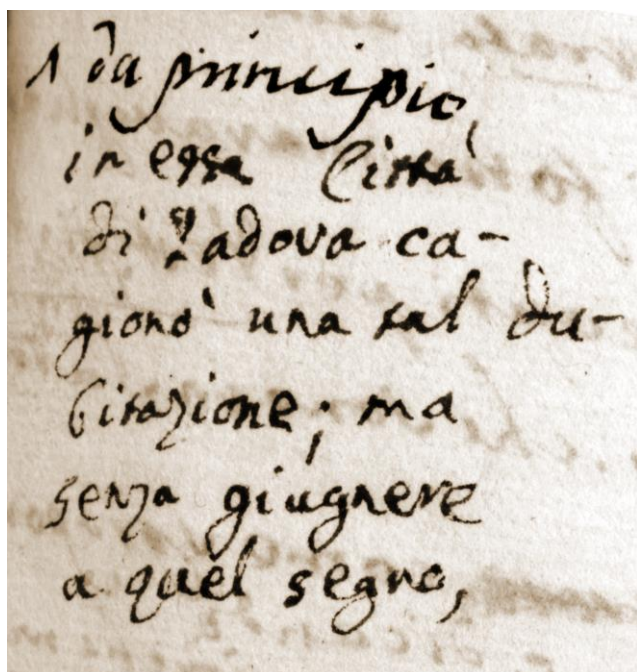 1 da principio,
in essa Città
di Padova ca-
gionò una tal du-
bitazione; ma
senza giugnere
a quel segno,